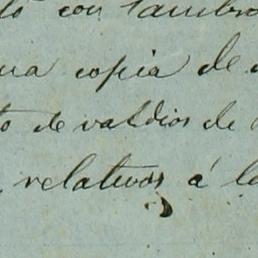 con
una copia de
to de valdios de
relativos á la